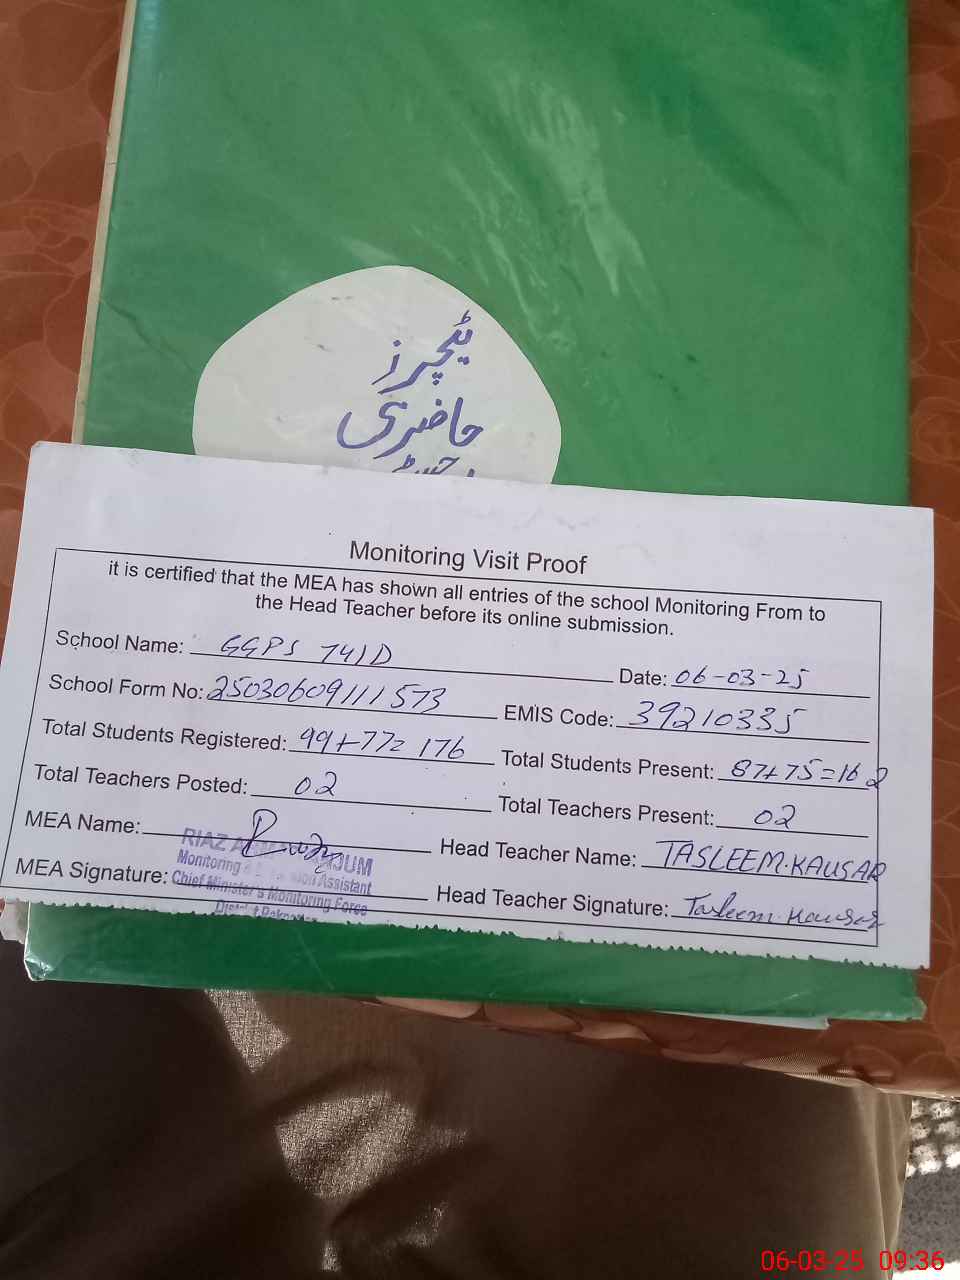 ٹیچرز
حاضری
Monitoring Visit Proof
it is certified that the MEA has shown all entries of the school Monitoring From to
the Head Teacher before its online submission.
School Name: GGPS 741D
Date: 06-03-25
School Form No: 25030609111573
EMIS Code: 39210335
Total Students Registered: 99+77=176
Total Students Present: 87+75=162
Total Teachers Posted: 02
Total Teachers Present: 02
MEA Name:
Head Teacher Name: TASLEEM.KAUSAR
RIAZ
Monitoring Assistant
MEA Signature:
Chief Minister's Monitoring Force
Head Teacher Signature: Tasleem.Kausar
06-03-25 09:36